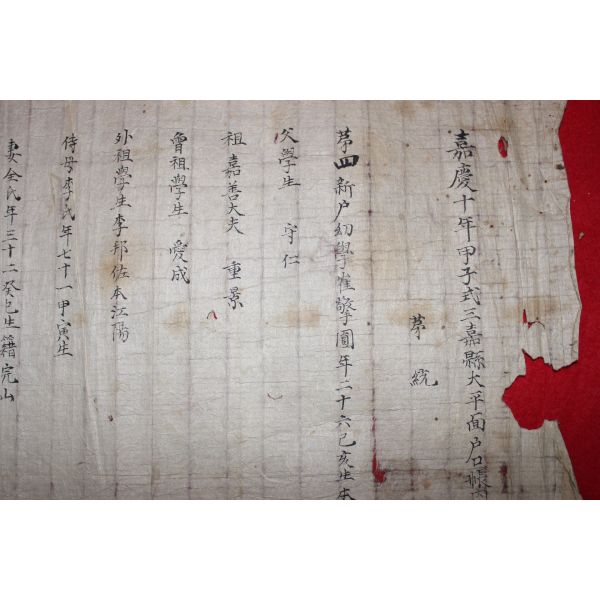 嘉慶十年甲子式三嘉縣大平面户口帳內
苐 統
苐四新户幼學崔擎圓年二十六己亥生本
父學生 守仁
祖嘉善大夫 重景
曾祖學生 愛成
外祖學生李邦佐本江陽
侍母李氏年七十一甲寅生
妻全氏年三十二癸巳生籍完山